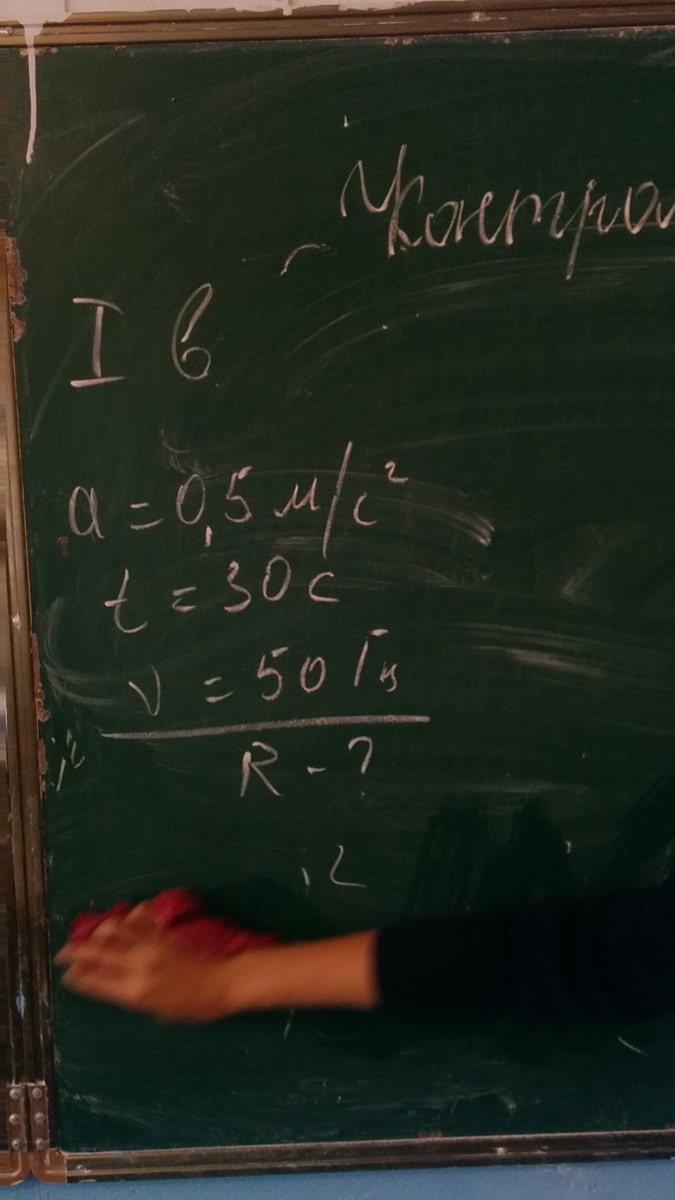 Контрол
I в
a = 0,5 м/с²
t = 30 с
ν = 50 Гц
R - ?